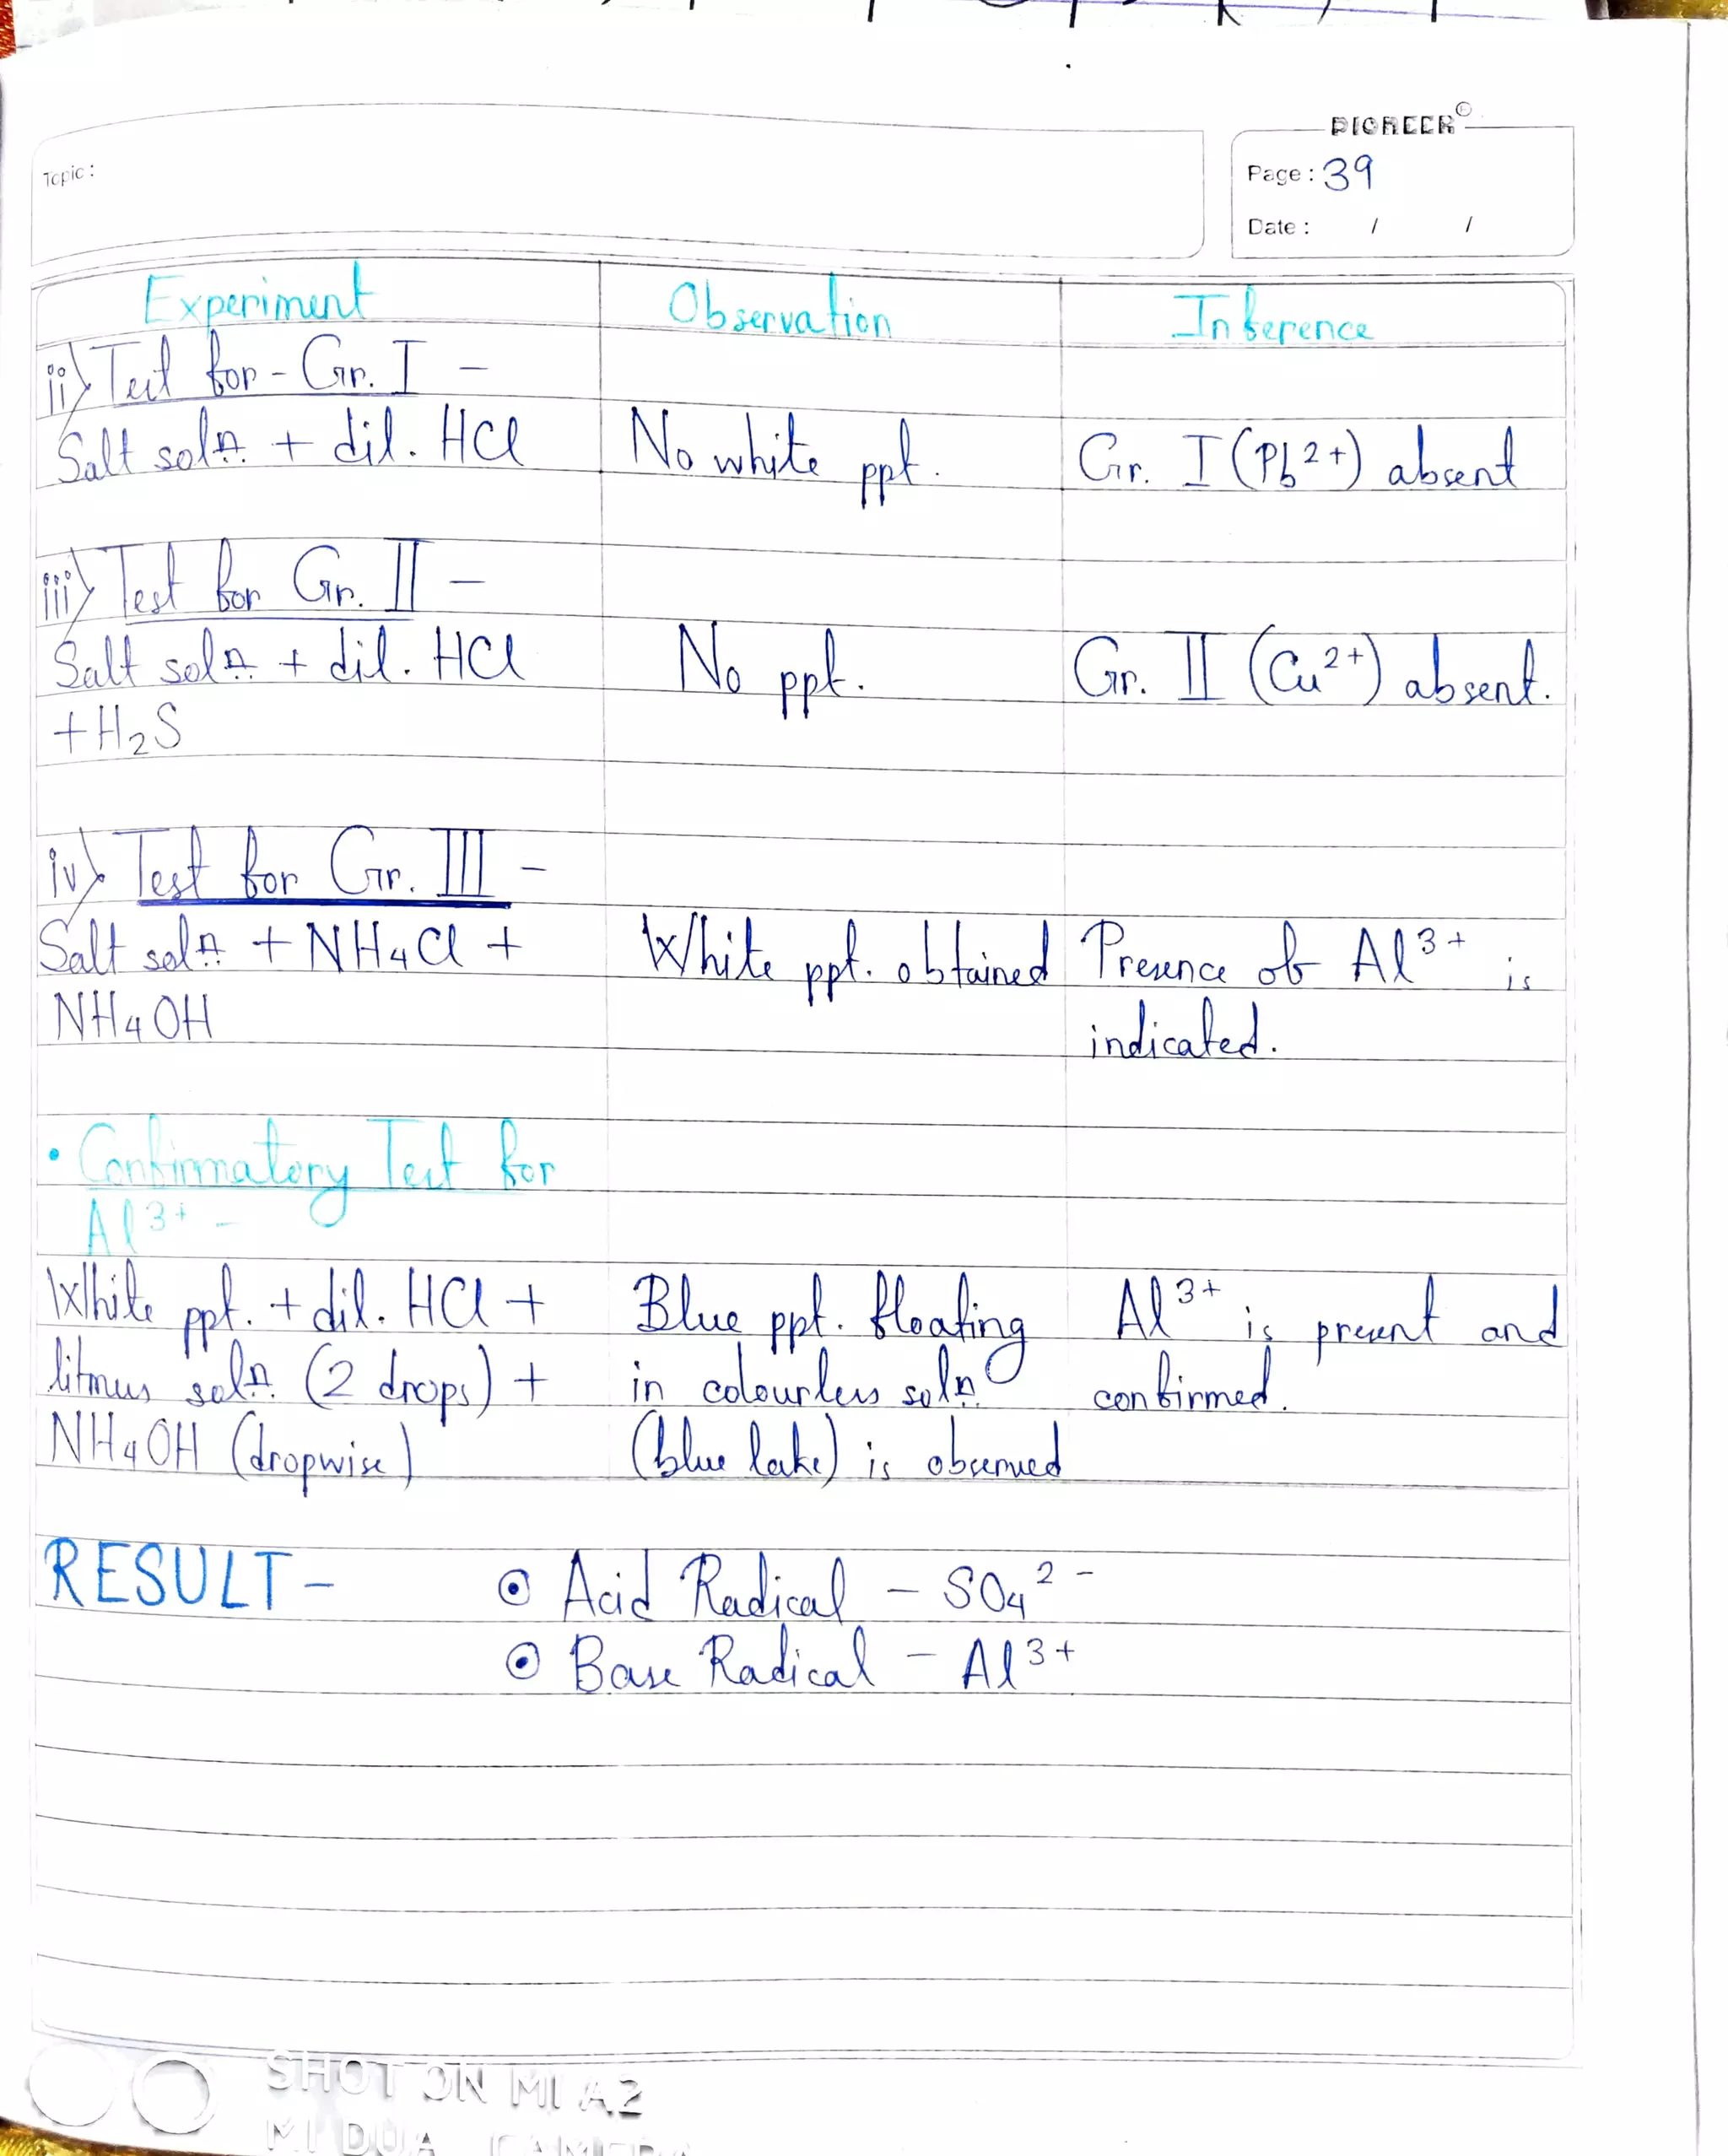 PIONEER
Topic :
Page : 39
Date : / /
Experiment Observation Inference
ii) Test for - Gr. I -
Salt soln. + dil. HCl No white ppt. Gr. I (Pb2+) absent
iii) Test for Gr. II -
Salt soln. + dil. HCl No ppt. Gr. II (Cu2+) absent.
+ H2S
iv) Test for Gr. III -
Salt soln. + NH4Cl + White ppt. obtained Presence of Al3+ is
NH4OH indicated.
• Confirmatory Test for
Al3+ -
White ppt. + dil. HCl + Blue ppt. floating Al3+ is present and
litmus soln. (2 drops) + in colourless soln. confirmed.
NH4OH (dropwise) (blue lake) is observed
RESULT - ⊙ Acid Radical - SO42-
⊙ Base Radical - Al3+
SHOT ON MI A2
MI DUAL CAMERA